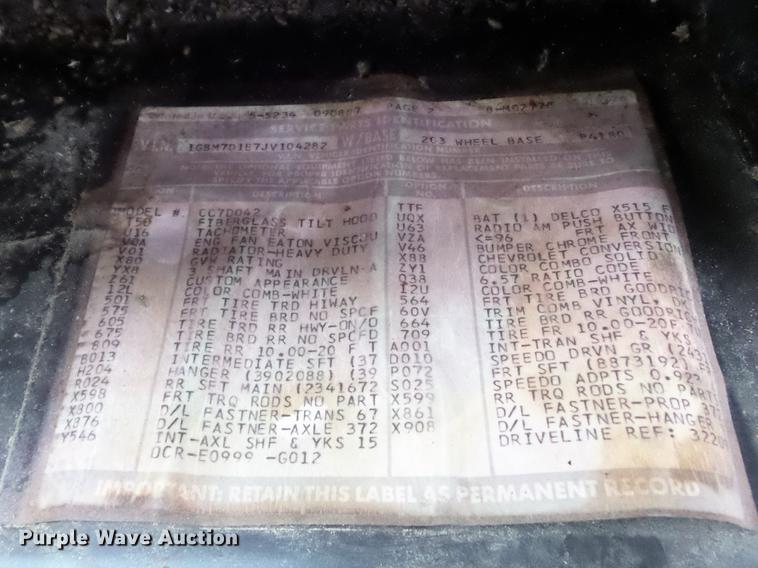 5-5234 090887 PAGE 2
SERVICE PARTS IDENTIFICATION
V.I.N. 1GBM7D1E7JV104282 W/BASE 203 WHEEL BASE P4180
DESCRIPTION OPTION NO. DESCRIPTION
MODEL #. CC7D042
T50 FIBERGLASS TILT HOOD
U16 TACHOMETER
VQA ENG FAN EATON VISCOU
V01 RADIATOR-HEAVY DUTY
X80 GVW RATING
YX8 3 SHAFT MAIN DRVLN-A
Z61 CUSTOM APPEARANCE
12L COLOR COMB-WHITE
501 FRT TIRE TRD HIWAY
575 FRT TIRE BRD NO SPCF
605 TIRE TRD RR HWY-ON/O
675 TIRE BRD RR NO SPCFD
809 TIRE RR 10.00-20 F T
B013 INTERMEDIATE SFT (37
H204 HANGER (3902088) (39
R024 RR SFT MAIN (2341672
X598 FRT TRQ RODS NO PART
X800 D/L FASTNER-TRANS 67
X876 D/L FASTNER-AXLE 372
Y546 INT-AXL SHF & YKS 15
OCR-E0999 -G012
TTF X515
UQX BAT (1) DELCO
U63 RADIO AM PUSH BUTTON
VZA <=96 FRT AX WID
V46 BUMPER CHROME FRONT
X88 CHEVROLET CONVERSION
ZY1 COLOR COMBO SOLID
Q38 6.57 RATIO CODE
I2U COLOR COMB-WHITE
564 FRT TIRE BRD GOODRIC
60V TRIM COMB VINYL, DK
664 TIRE BRD RR GOODRIC
709 TIRE FR 10.00-20F
A021 INT-TRAN SHF & YKS
D010 SPEEDO DRVN GR (2431
P072 FRT SFT (8873192)
S025 SPEEDO ADPTS 0.922
X599 RR TRQ RODS NO PART
X861 D/L FASTNER-PROP 37
X908 D/L FASTNER-HANGER
DRIVELINE REF: 3220
IMPORTANT: RETAIN THIS LABEL AS PERMANENT RECORD
Purple Wave Auction